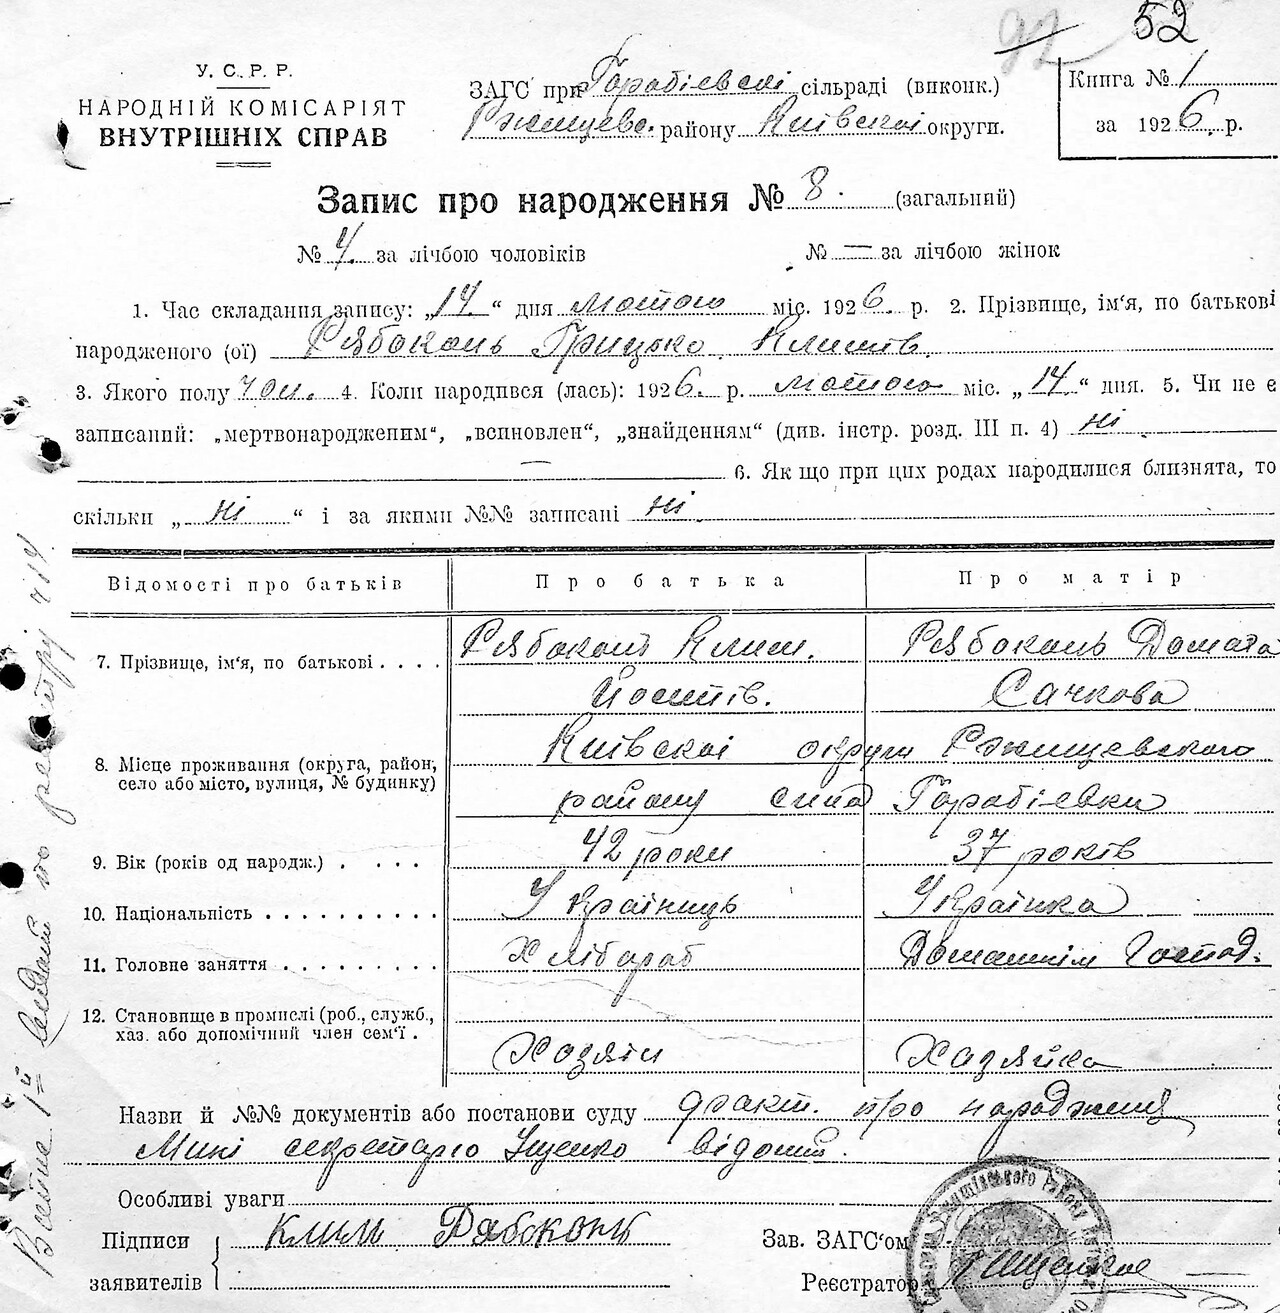 52
92
У. С. Р. Р.
НАРОДНІЙ КОМІСАРІЯТ
ВНУТРІШНІХ СПРАВ
ЗАГС при Горобієвскі сільраді (виконк.)
Ржищевс. району Київскоі округи.
Книга № 1
за 1926 р.
Запис про народження № 8. (загальний)
№ 4. за лічбою чоловіків № — за лічбою жінок
1. Час складання запису: „14.“ дня лютого міс. 1926. р. 2. Прізвище, ім'я, по батькові
народженого (ої) Рябоконь Грицько Климів.
3. Якого полу чол. 4. Коли народився (лась): 1926. р. лютого міс. „14.“ дня. 5. Чи не є
записаний: „мертвонародженим“, „вспновлен“, „знайденням“ (див. інстр. розд. III п. 4) ні.
— 6. Як що при цих родах народилися близнята, то
скільки „ні“ і за якими №№ записані ні.
Відомості про батьків Про батька Про матір
7. Прізвище, ім'я, по батькові . . . . Рябоконь Клим. Рябоконь Домаха
Йосипів. Сачкова
8. Місце проживання (округа, район, Київскоі округи Ржищевского
село або місто, вулиця, № будинку) району села Горобіевки
9. Вік (років од народж.) . . . . 42 роки 37 років
10. Національність . . . . . . . . . . Україниць Українка
11. Головне заняття . . . . . . . . . Хлібороб Домашнім Господ.
12. Становище в промислі (роб., служб.,
хаз. або допомічний член сем'ї . Хазяін Хазяйка
Назви й №№ документів або постанови суду факт. про народженя
Мині секретарю Іщенко відомий.
Особливі уваги
Підписи Клим Рябоконь Зав. ЗАГС'ом
заявителів Реєстратор Іщенко